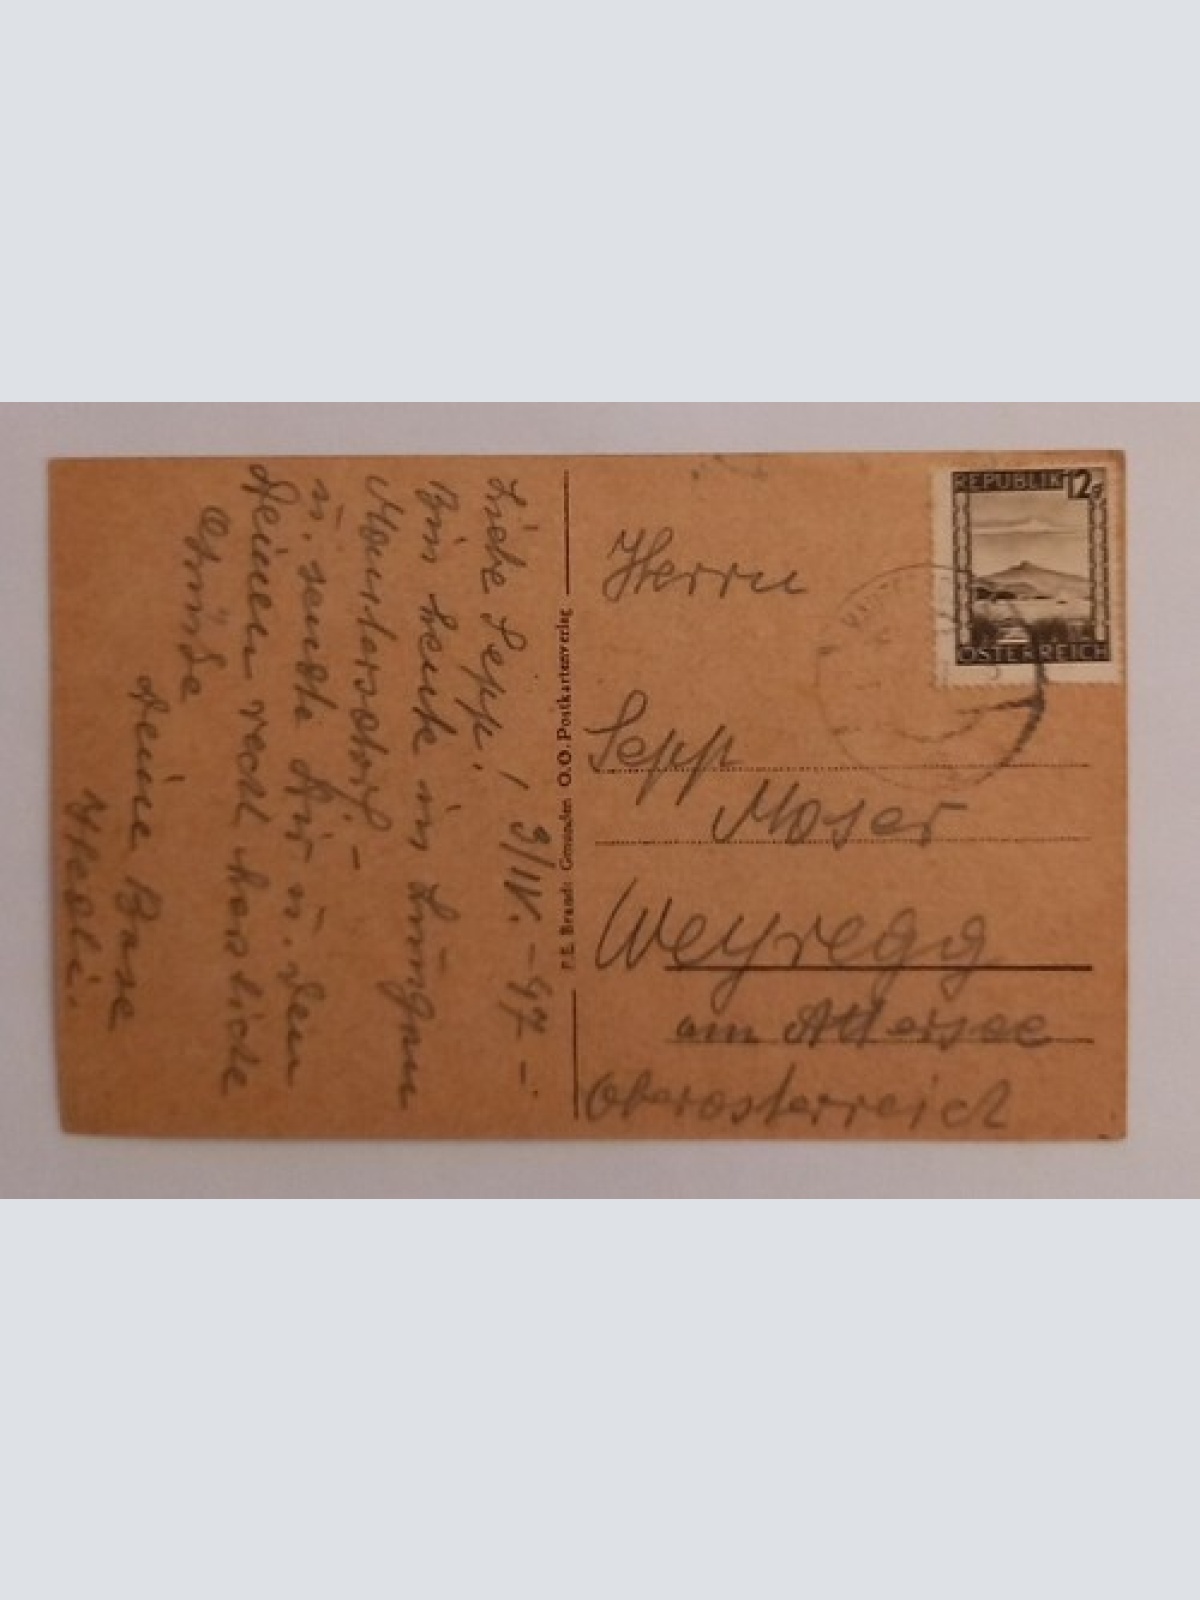 Liebe Sepp! 9/IV.-47-
Bin heute in Lungau
Mautersdorf-
u. sende Dir u. den
Deinen recht herzliche
Grüße
Deine Base
P.E. Brandt Gmunden O.Ö. Postkartenverlag
REPUBLIK 12g
ÖSTERREICH
Herrn
Sepp
Moser
Weyregg
am Attersee
Oberösterreich